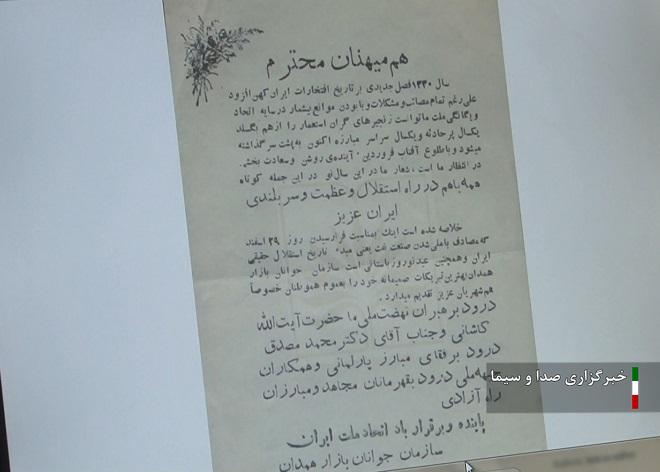 هم میهنان محترم
سال ۱۳۳۰ فصل جدیدی بر تاریخ افتخارات ایران کهن افزود
علی رغم تمام مصائب و مشکلات و با بودن موانع بیشمار در سایه اتحاد
و یگانگی ملت ما توانست زنجیرهای گران استعمار را از هم بگسلد
یکسال پر حادثه و یکسال سراسر مبارزه اکنون به پشت سر گذاشته
میشود و با طلوع آفتاب فروردین آینده‌ی روشن و سعادت بخش
در انتظار ما است، شعار ما در این سال نو در این جمله کوتاه
همه باهم در راه استقلال و عظمت و سربلندی
ایران عزیز
خلاصه شده است اینک بمناسبت فرارسیدن روز ۲۹ اسفند
که مصادف با ملی شدن صنعت نفت یعنی مبدء تاریخ استقلال حقیقی
ایران و همچنین عید نوروز باستانی است سازمان جوانان بازار
همدان بهترین تبریکات صمیمانه خود را بعموم هموطنان خصوصاً
همشهریان عزیز تقدیم میدارد.
درود برهبران نهضت ملی ما حضرت آیت الله
کاشانی و جناب آقای دکتر محمد مصدق
درود برفقای مبارز پارلمانی و همکاران
جبهه ملی درود بقهرمانان مجاهد و مبارزان
راه آزادی
پاینده و برقرار باد اتحاد ملت ایران
سازمان جوانان بازار همدان
خبرگزاری صدا و سیما